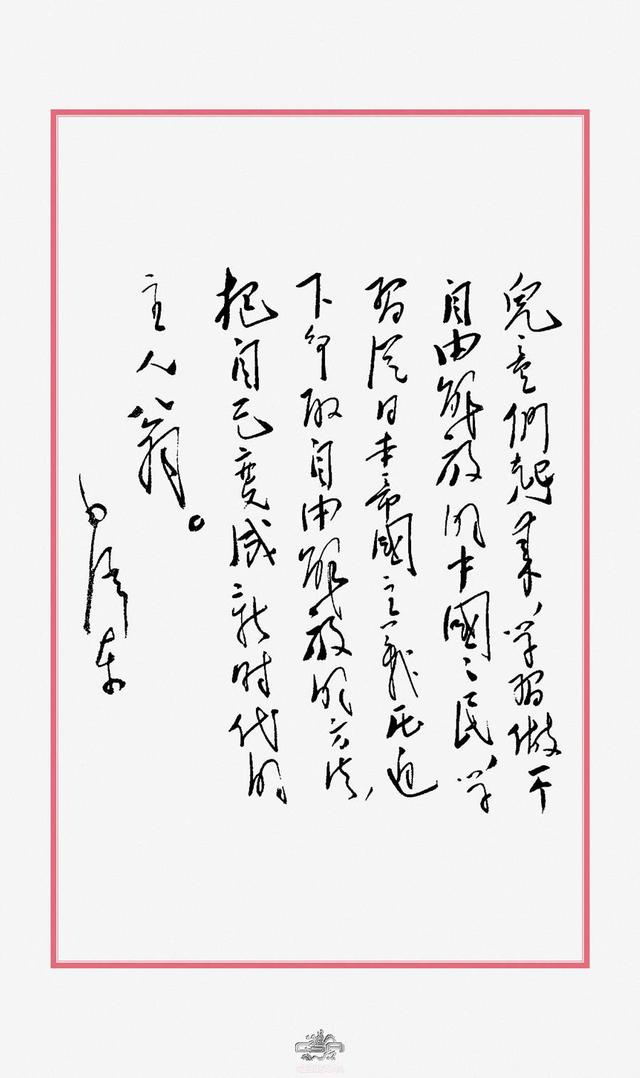 兒童們起来，学習做一个
自由解放的中國國民，学
習從日本帝國主義压迫
下争取自由解放的方法，
把自己变成新时代的
主人翁。
毛澤东